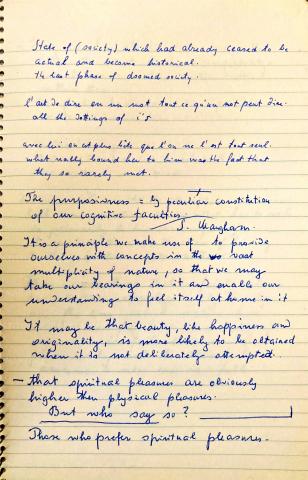 State of (society) which had already ceased to be
actual and become historical.
The last phase of doomed society.
l'art de dire en un mot tout ce qu'on peut dire.
all the dottings of i's
avec lui on est plus bête que l'on ne l'est tout seul.
what really bound her to him was the fact that
they so rarely met.
The purposiveness = by peculiar constitution
of our cognitive faculties.
S. Maugham.
It is a principle we make use of to provide
ourselves with concepts in the vast
multiplicity of nature, so that we may
take our bearings in it and enable our
understanding to feel itself at home in it
It may be that beauty, like happiness and
originality, is more likely to be obtained
when it is not deliberately attempted.
– that spiritual pleasures are obviously
higher then physical pleasures.
But who say so?
Those who prefer spiritual pleasures.